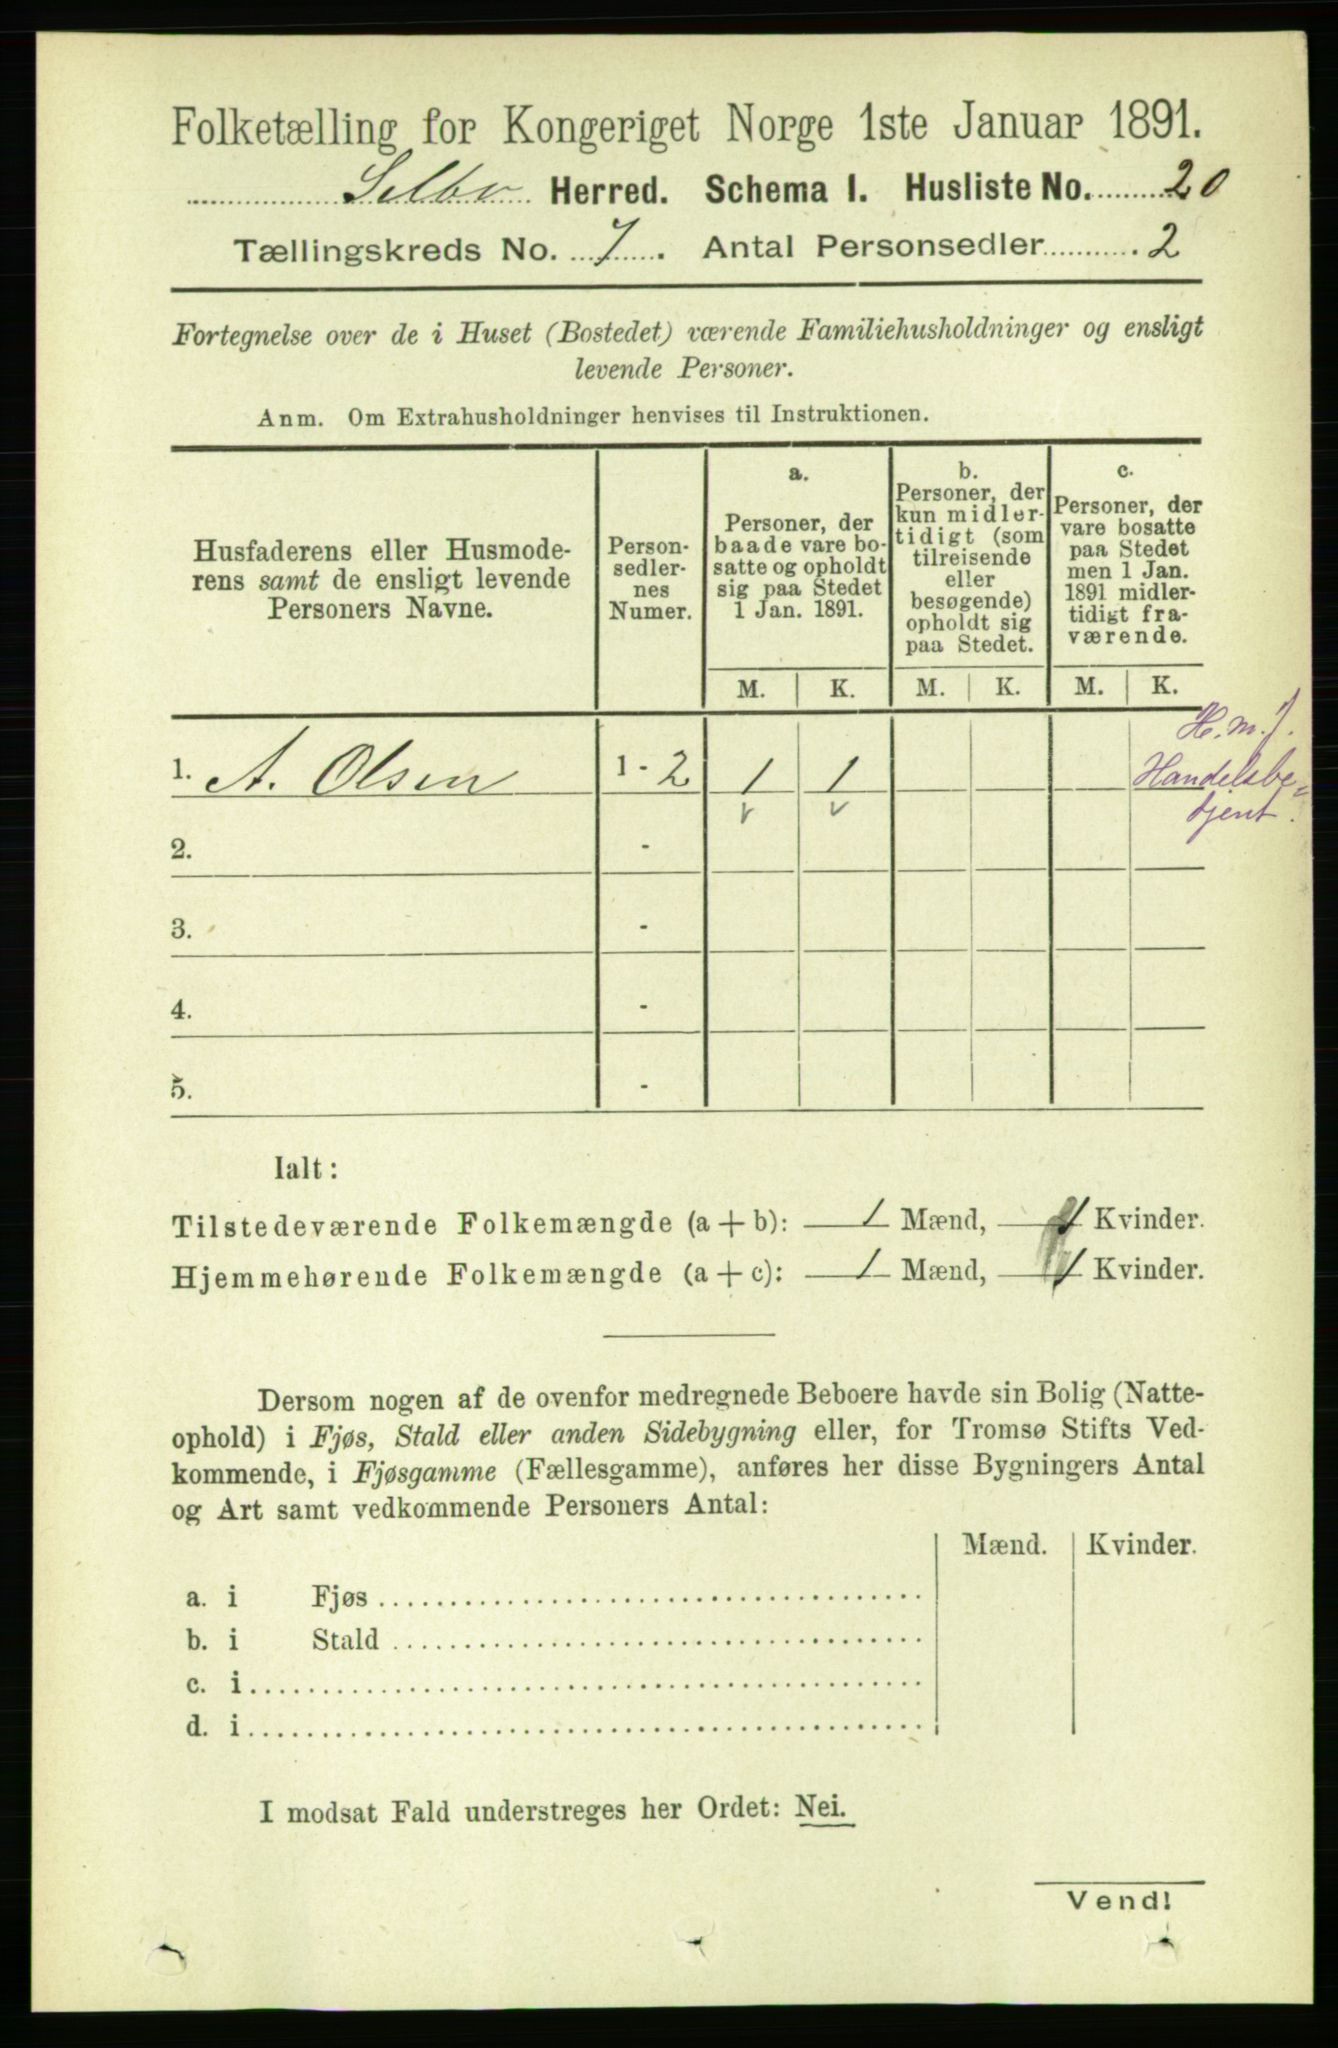 Folketælling for Kongeriget Norge 1ste Januar 1891.
Selbu Herred. Schema I. Husliste No. 20
Tællingskreds No. 7. Antal Personsedler 2
Fortegnelse over de i Huset (Bostedet) værende Familiehusholdninger og ensligt
levende Personer.
Anm. Om Extrahusholdninger henvises til Instruktionen.
Husfaderens eller Husmode-
rens samt de ensligt levende
Personers Navne.
Person-
sedler-
nes
Numer.
a.
Personer, der
baade vare bo-
satte og opholdt
sig paa Stedet
1 Jan. 1891.
b.
Personer, der
kun midler-
tidigt (som
tilreisende
eller
besøgende)
opholdt sig
paa Stedet.
c.
Personer, der
vare bosatte
paa Stedet
men 1 Jan.
1891 midler-
tidigt fra-
værende.
M. K. M. K. M. K.
H. m. f.
Handelsbe-
tjent.
1. A. Olsen 1 - 2 1 1
v v
2. -
3. -
4. -
5. -
Ialt:
Tilstedeværende Folkemængde (a + b): 1 Mænd, 1 Kvinder.
Hjemmehørende Folkemængde (a + c): 1 Mænd, 1 Kvinder.
Dersom nogen af de ovenfor medregnede Beboere havde sin Bolig (Natte-
ophold) i Fjøs, Stald eller anden Sidebygning eller, for Tromsø Stifts Ved-
kommende, i Fjøsgamme (Fællesgamme), anføres her disse Bygningers Antal
og Art samt vedkommende Personers Antal:
Mænd. Kvinder.
a. i Fjøs
b. i Stald
c. i
d. i
I modsat Fald understreges her Ordet: Nei.
Vend!